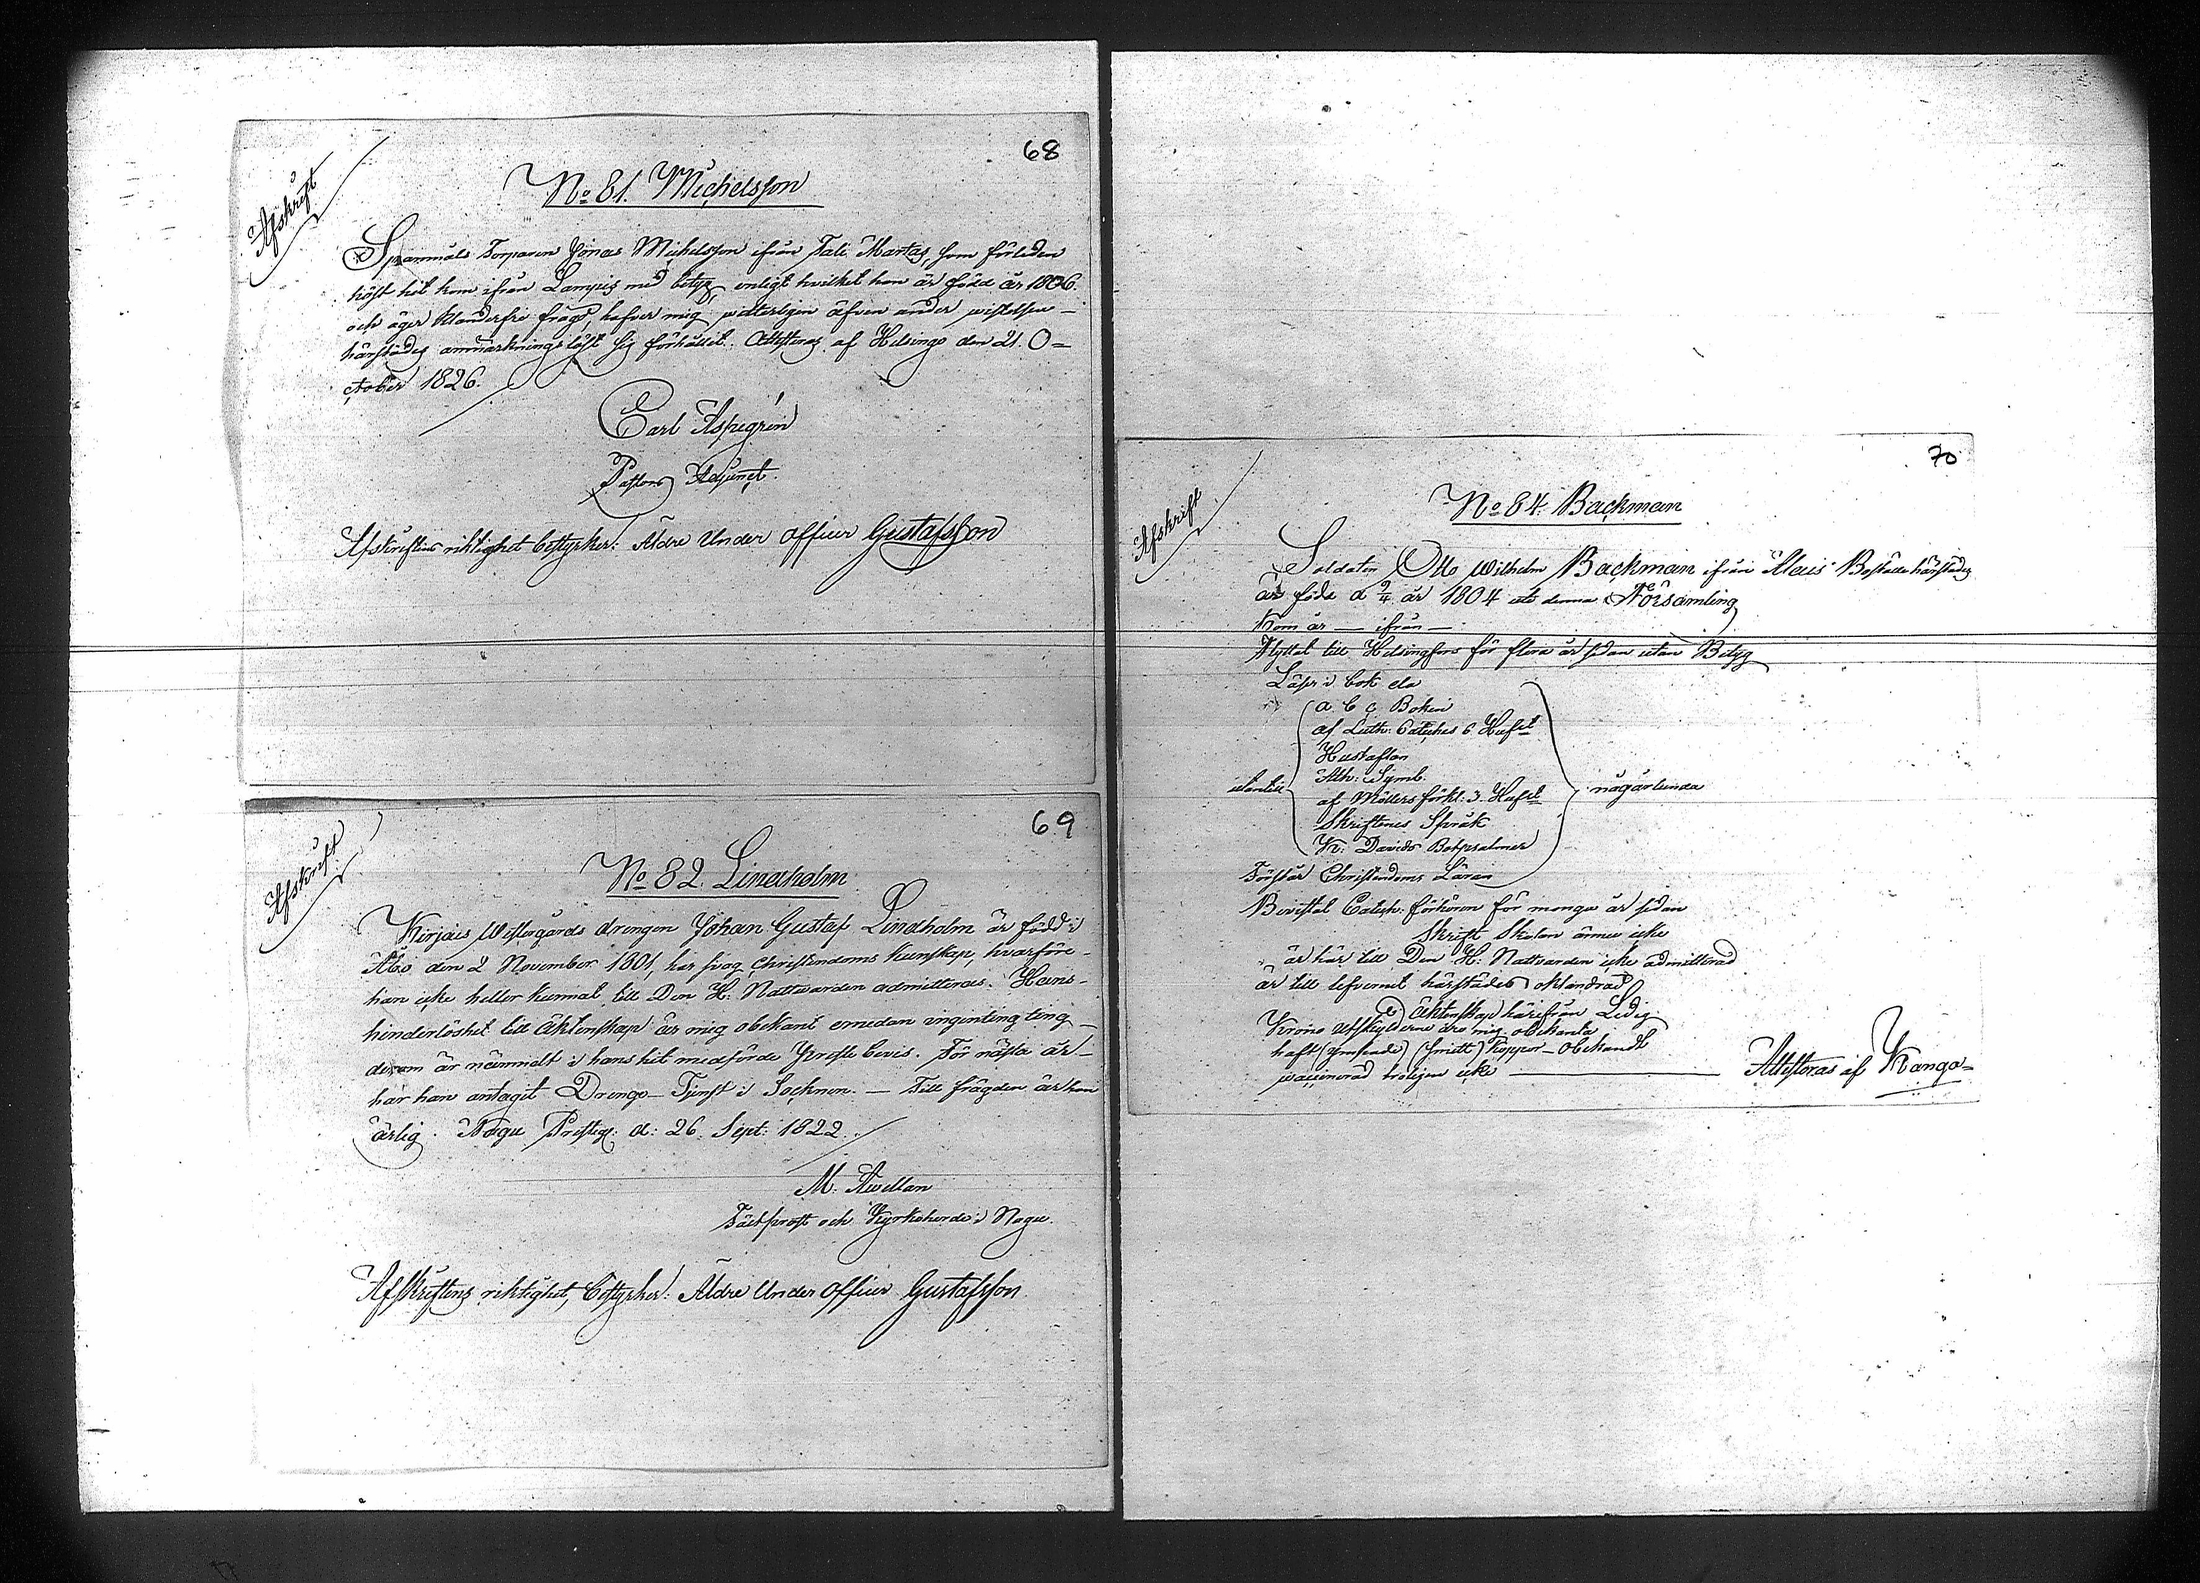 68
Afskrift
No 81. Michelsson
Spanmåls Torparen Jonas Michelsson ifrån Tali Mårtas, som förleden
höst hit kom ifrån Lampis med betyg, enligt hvilket han är född år 1806.
och äger klanderfri frägd, hafver mig witterligen äfven under wistelsen –
härstädes anmärkningslöst sig förhållit. Attesteras af Helsinge den 21. O=
ctober 1826.
Carl Aspegrén
Pastors Adjunct.
Afskriftens riktighet bestyrker: Äldre Under Officer Gustafsson
69
Afskrift
No 82. Lindholm
Kirjais Westergårds drängen Johan Gustaf Lindholm är född i
Åbo den 2 November 1801, har svag Christendoms kunskap, hvarföre –
han icke heller kunnat till Den H. Nattvarden admitteras. Hans –
hinderlöshet till äktenskap är mig obekant emedan ingenting ting –
derom är nämndt i hans hit medförde Preste bevis. För nästa år –
har han antagit Drenge-Tjenst i Socknen. – Till frägden är han
ärlig. Nagu Prestg: d: 26. Sept: 1822.
M. Avellan
Kyrkoherde i Nagu.
Afskriftens riktighet, bestyrker: Äldre Under Officer Gustafsson.
70
Afskrift
No 84. Backman
Soldaten Otto Wilhelm Backman ifrån Boställe härstädes
är född d 9/4 år 1804 uti denna Församling
Kom år — ifrån —
Flyttat till Helsingfors för flera år sedan utan Betyg
Läser i bok
utantill
a b c Boken
af Luth: Cateches 6 Hufst
Hustaflan
Ath: Symb.
af Möllers förkl. 3. Hufst
Skriftenes Språk
K: Davids Botpsalmer
någorlunda
Förstår Christendoms Läran
Bevistat Catech: förhören för många år sedan
Skrift Skolan ännu icke
är här till Den H: Nattvarden icke admitterad
är till lefvernet härstädes oklandrad
Äktenskap härifrån Ledig
Krono Utskylderne äro mig obekanta
haft Koppor – Obekandt
vaccinerad troligen icke —
Attesteras af Kango=